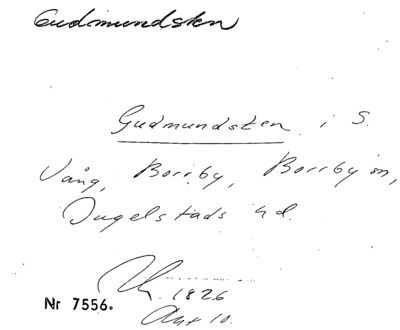 Gudmundsten
Gudmundsten i S.
Vång, Borrby, Borrby sn,
Ingelstads hd.
1826
Nr 7556.
Akt 10.